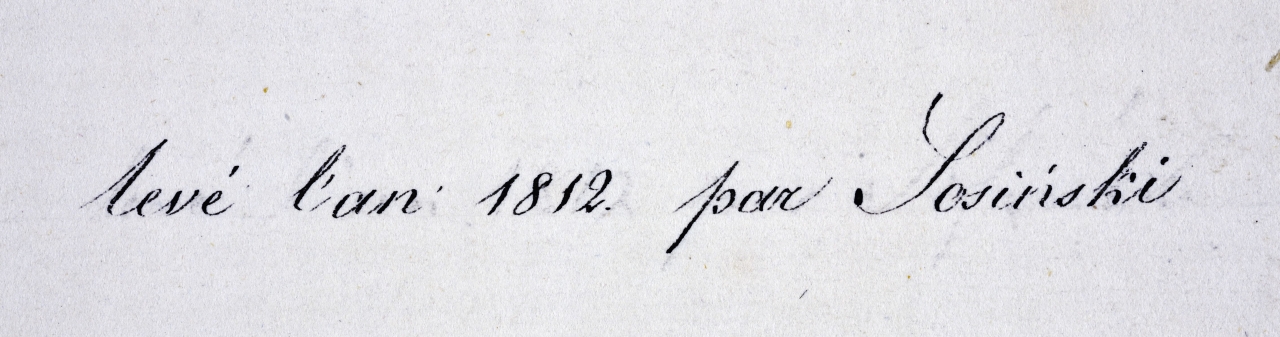 levé l'an 1812. par Sosiński